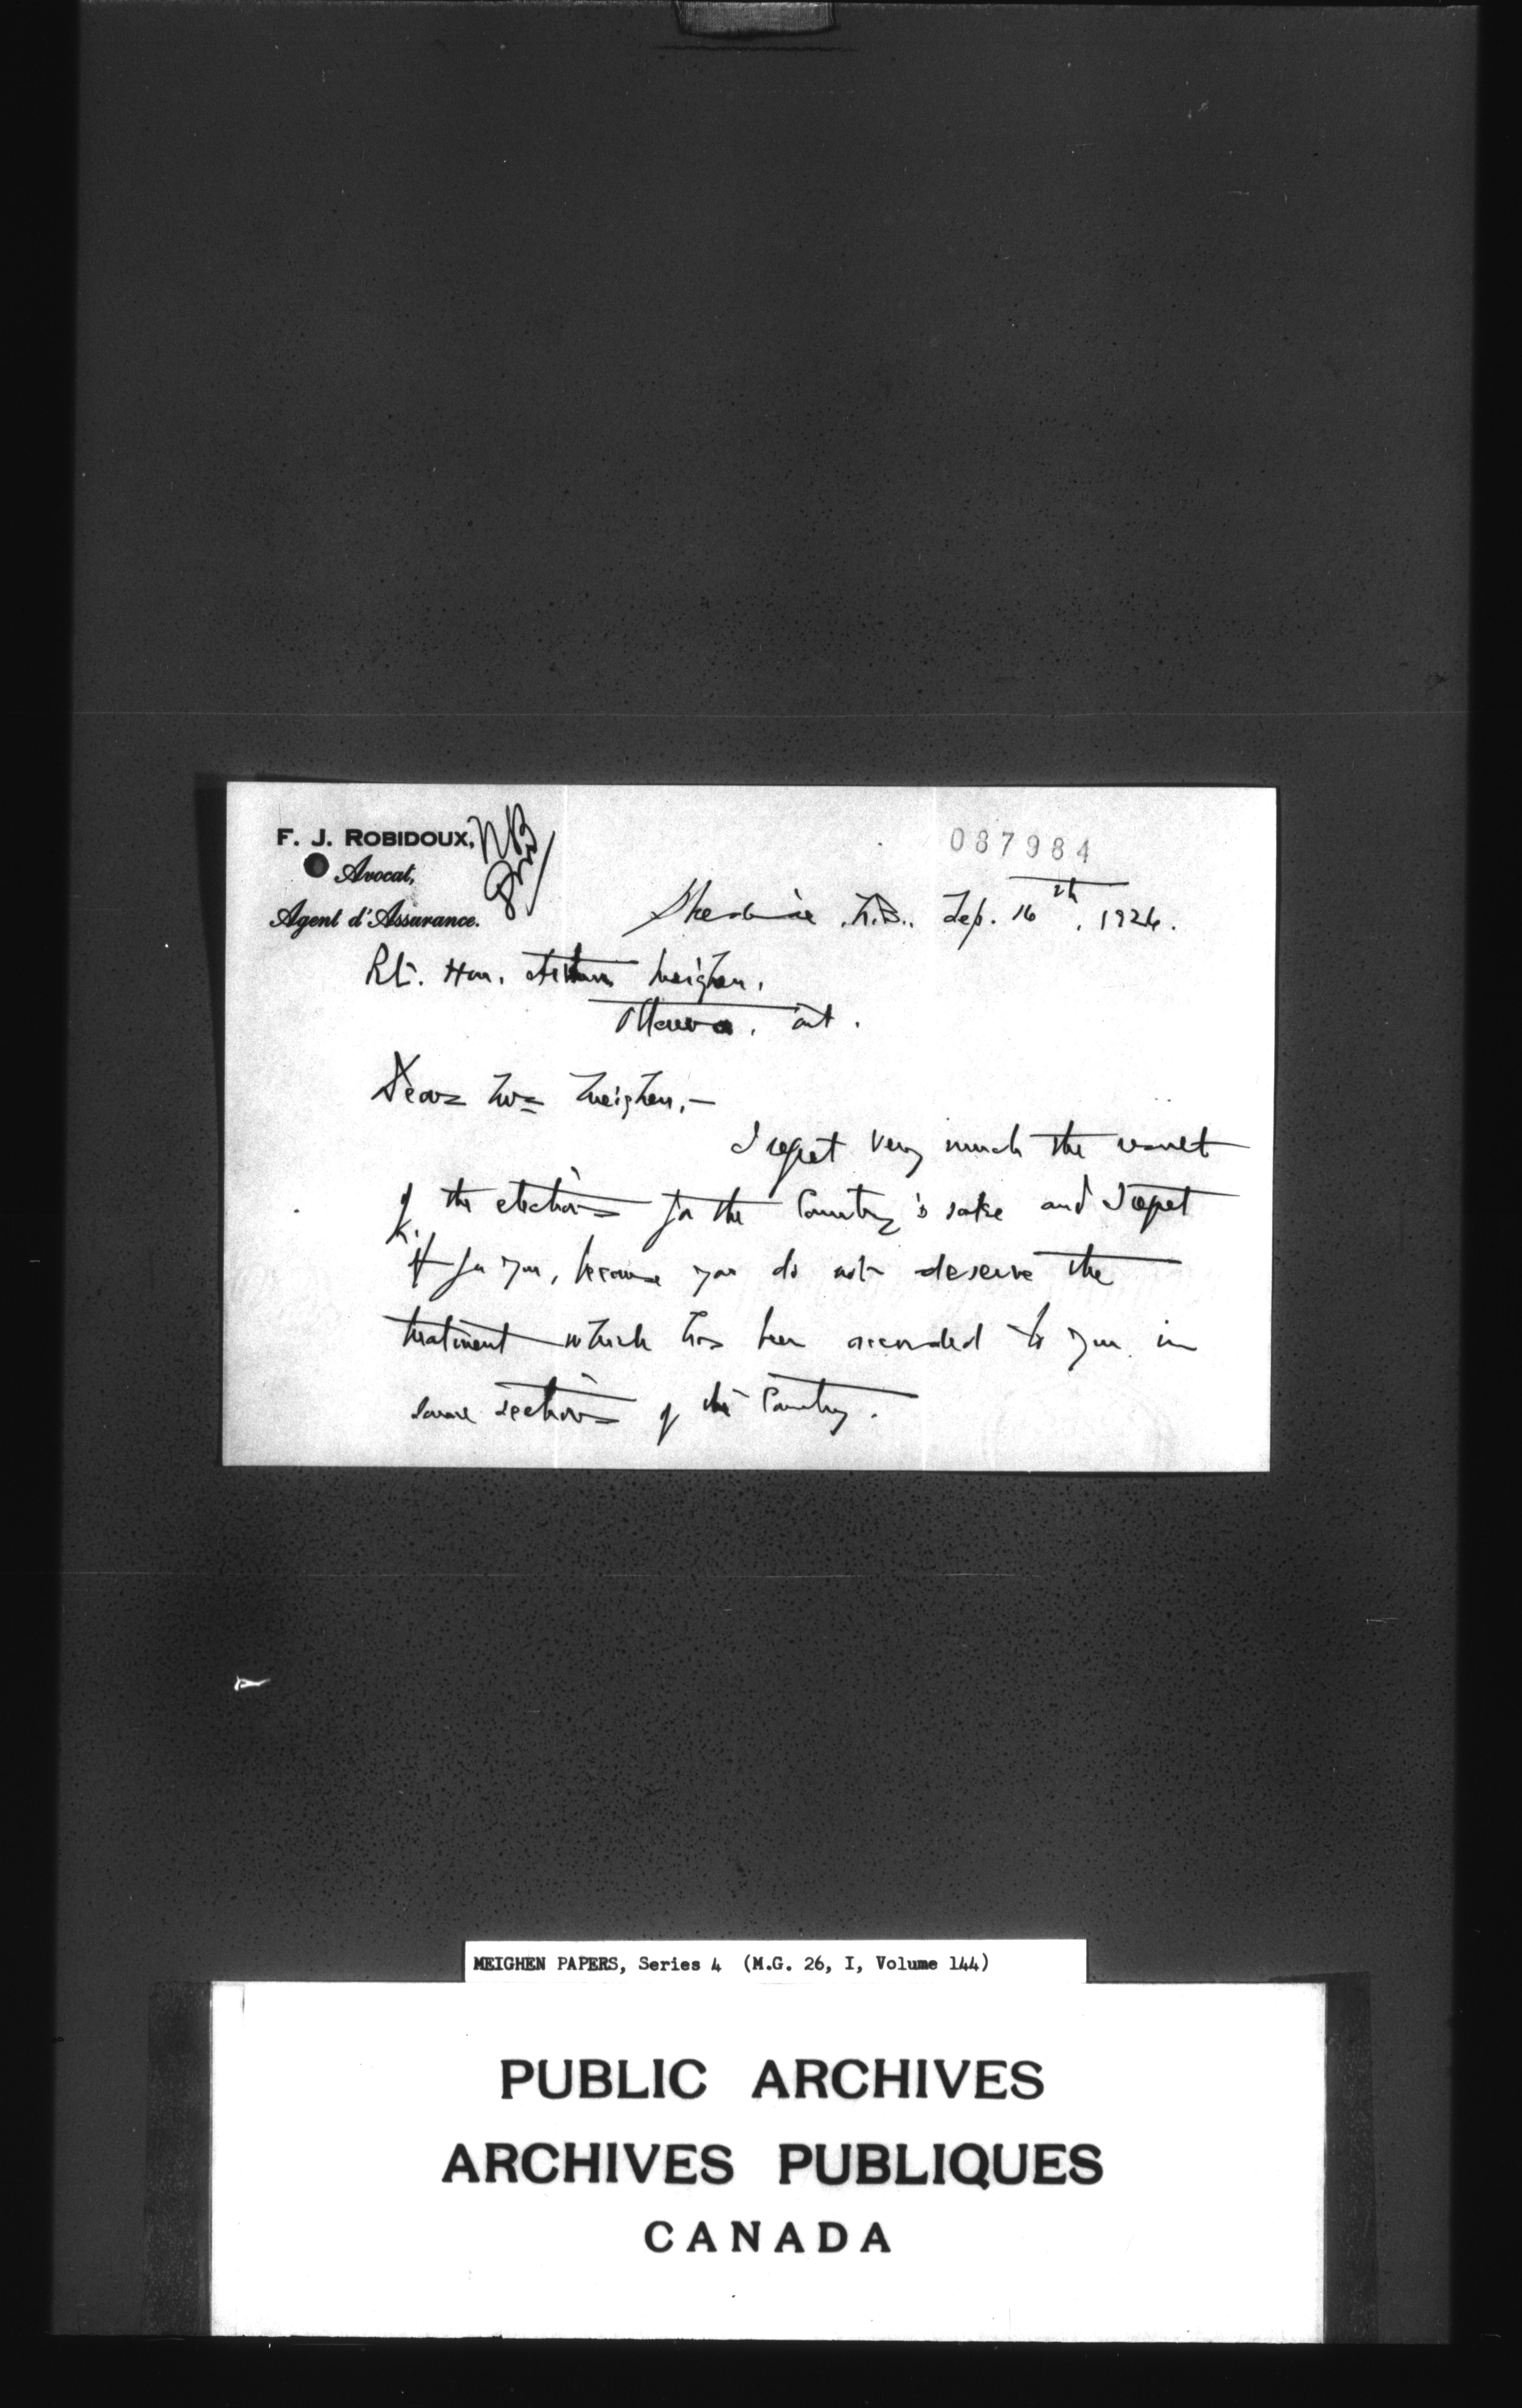 F. J. ROBIDOUX,
Avocat,
Agent d'Assurance.
NB
087984
Shediac N.B., Sep. 16th, 1926.
Rt. Hon. Arthur Meighen,
Ottawa, Ont.
Dear Mr Meighen,—
I regret very much the result
of the elections for the Country's sake and I regret
it for you, because you do not deserve the
treatment which has been accorded to you in
some sections of the Country.
MEIGHEN PAPERS, Series 4 (M.G. 26, I, Volume 144)
PUBLIC ARCHIVES
ARCHIVES PUBLIQUES
CANADA